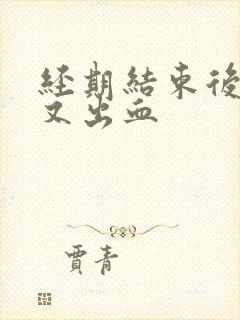 經期結束後
又出血
賈青